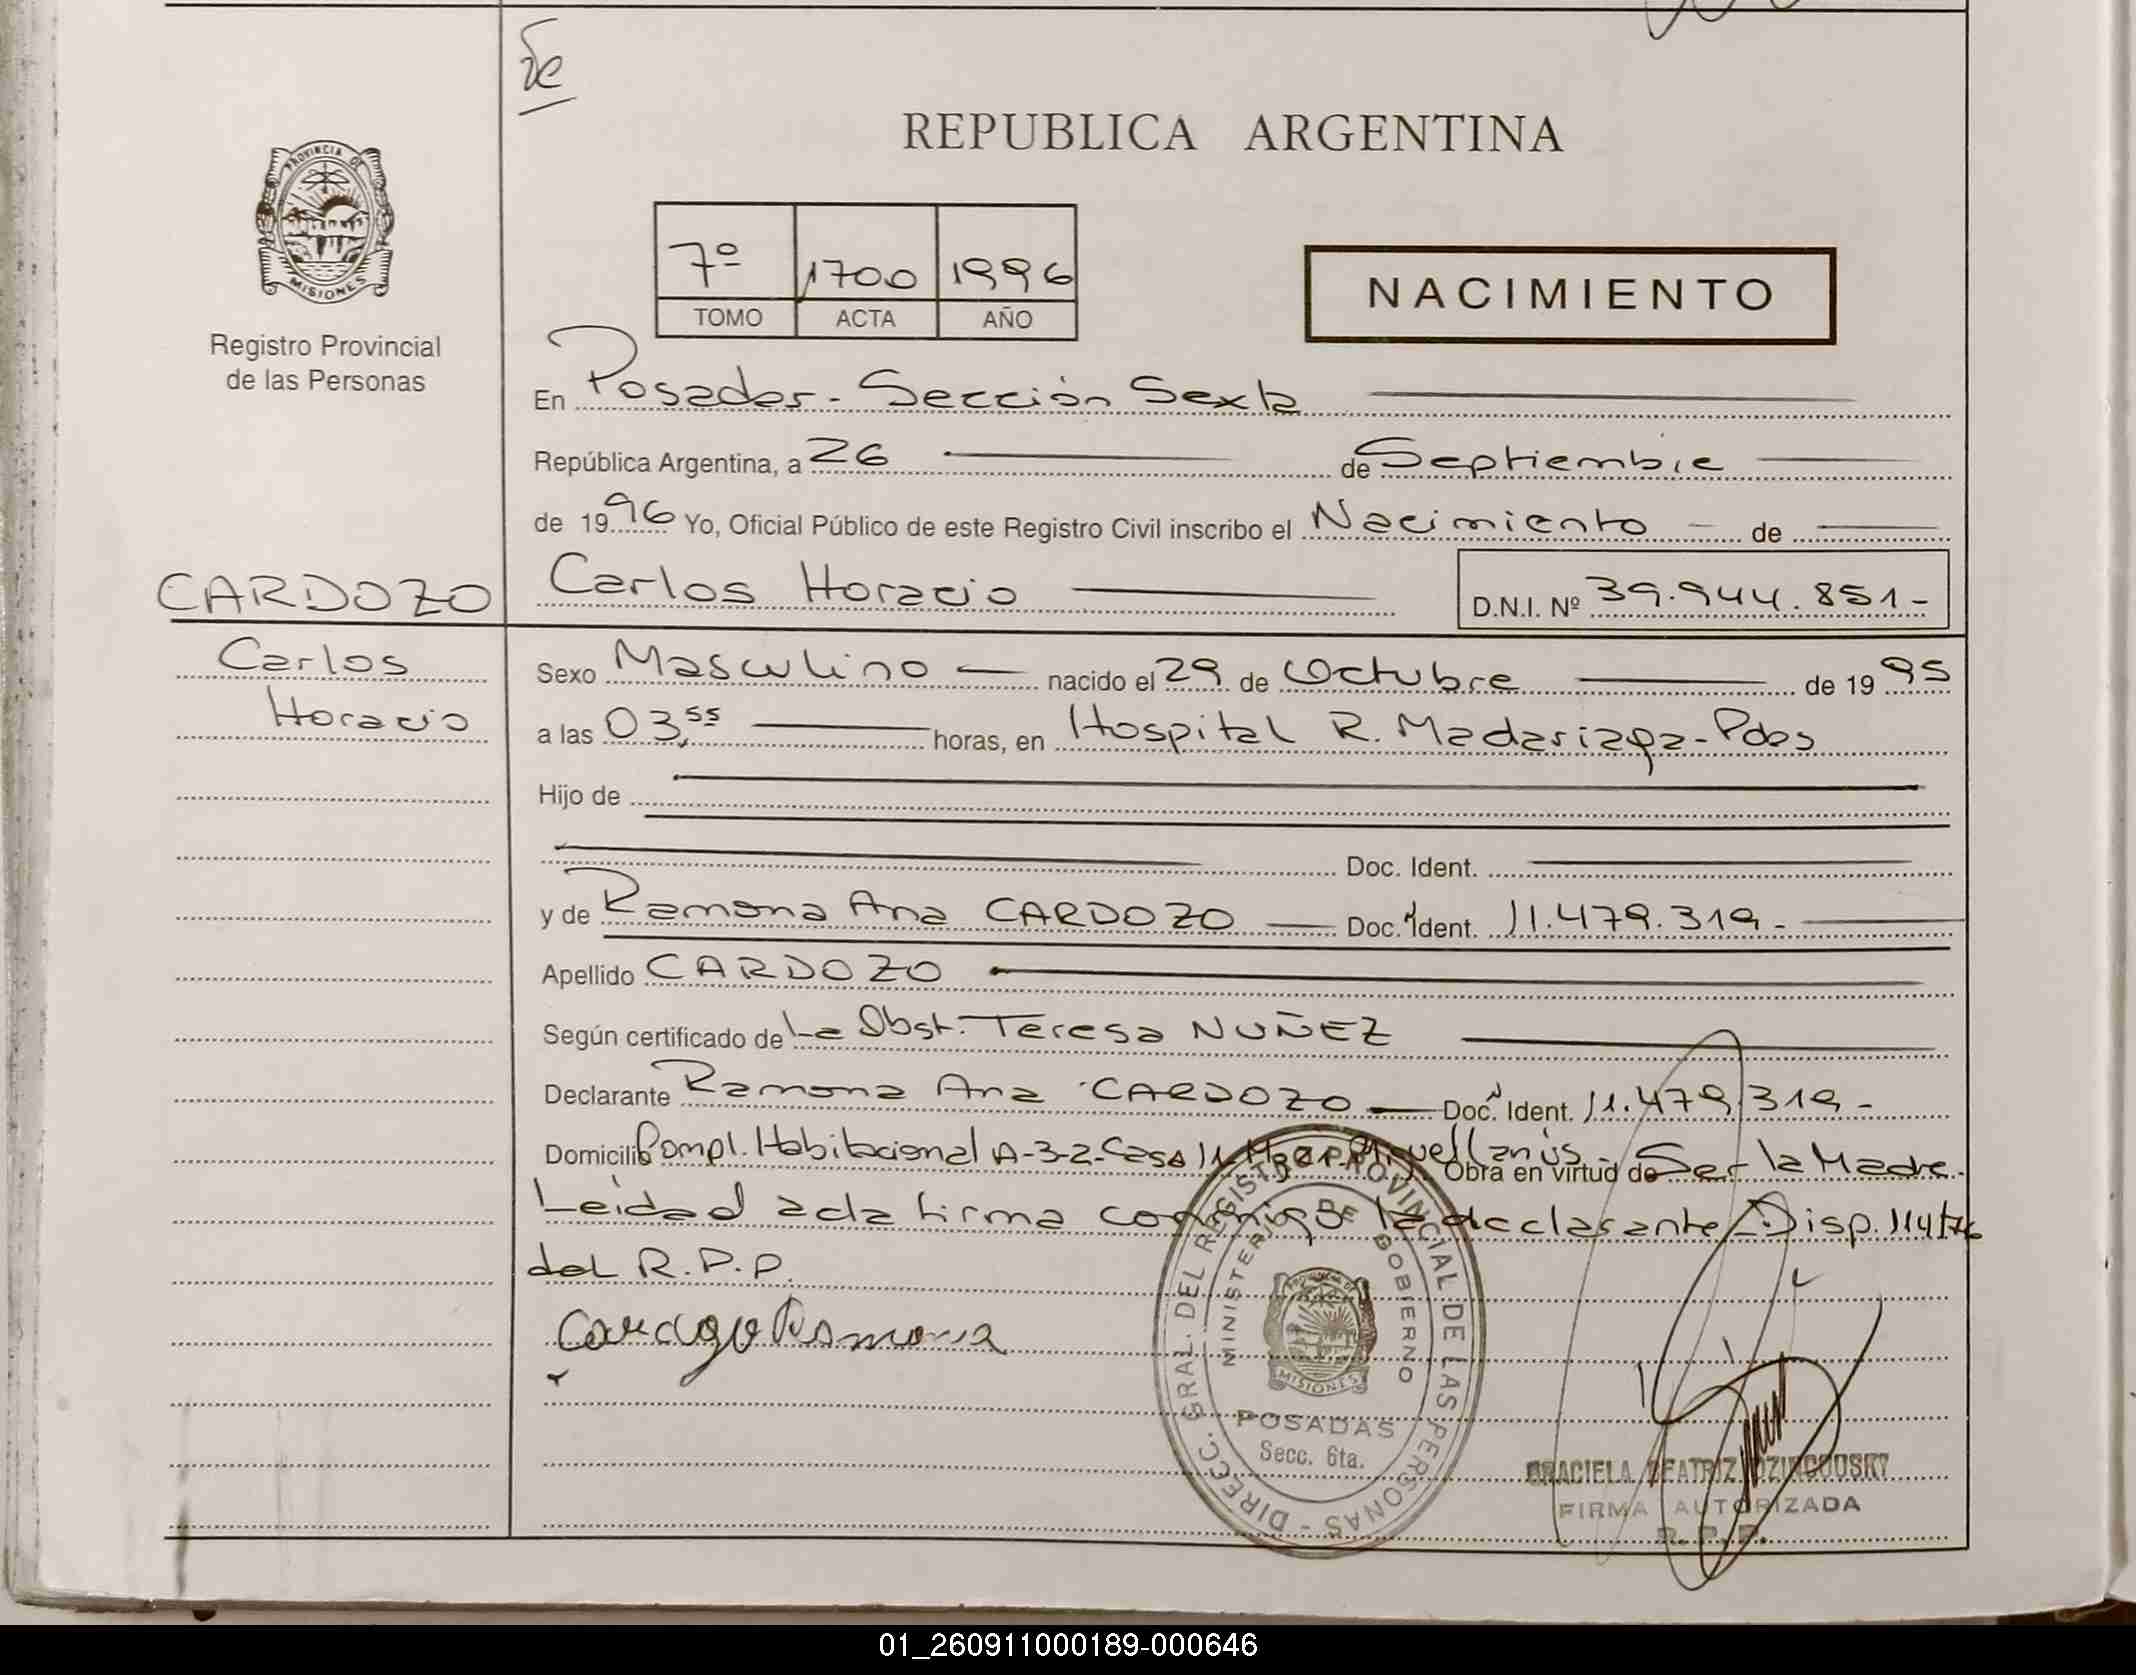 REPUBLICA ARGENTINA
PROVINCIA DE
MISIONES
Registro Provincial
de las Personas
7º 1700 1996
TOMO ACTA AÑO
NACIMIENTO
En Posadas - Sección Sexta
República Argentina, a 26 de Septiembre
de 1996 Yo, Oficial Público de este Registro Civil inscribo el Nacimiento de
CARDOZO
Carlos Horacio
D.N.I. Nº 39.944.851-
Carlos
Horacio
Sexo Masculino nacido el 29 de Octubre de 1995
a las 03,55 horas, en Hospital R. Madariaga - Pdas
Hijo de
Doc. Ident.
y de Ramona Ana CARDOZO Doc. Ident. 11.479.319-
Apellido CARDOZO
Según certificado de La Obst. Teresa NUÑEZ
Declarante Ramona Ana CARDOZO Doc. Ident. 11.479.319-
Domicilio Compl. Habitacional A-3-2-Casa Miguel Lanús - Obra en virtud de Ser la Madre.
Leidad acta firma conmigo la declarante Disp. 114/76
del R.P.P.
Cardozo Ramona
DIRECC. GRAL. DEL REGISTRO PROVINCIAL DE LAS PERSONAS -
MINISTERIO DE GOBIERNO
MISIONES
POSADAS
Secc. 6ta.
GRACIELA BEATRIZ
FIRMA AUTORIZADA
R.P.P.
01_260911000189-000646